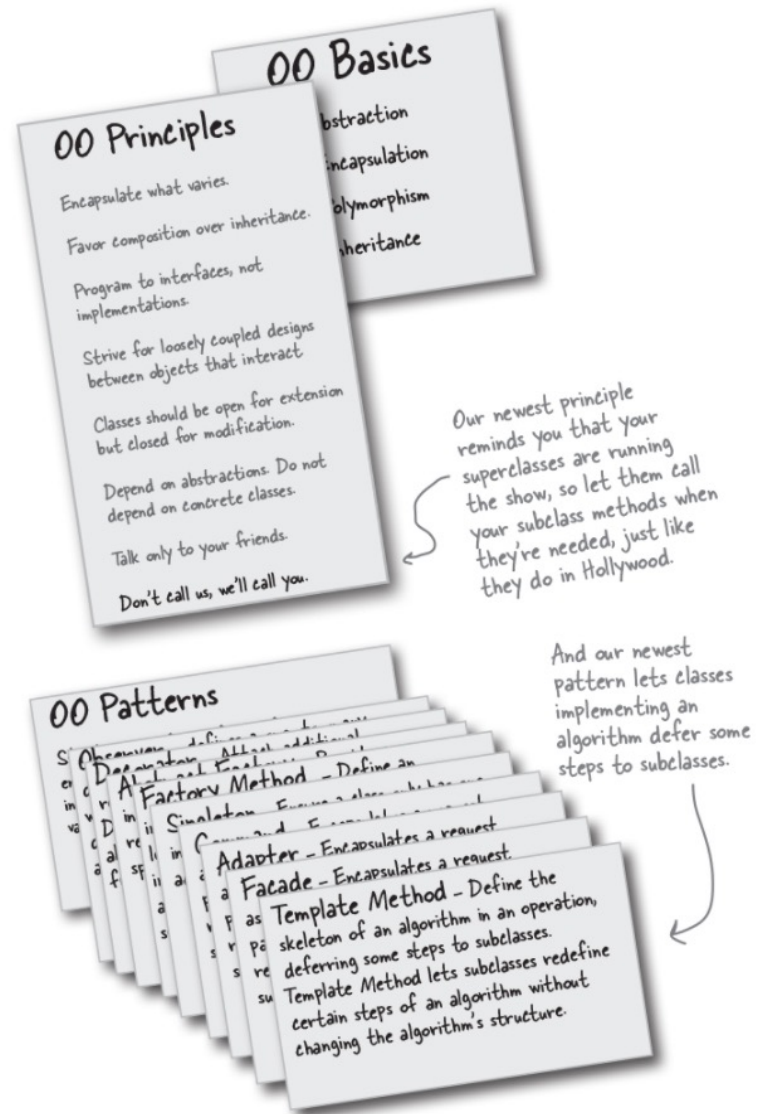 OO Basics
bstraction
ncapsulation
olymorphism
nheritance
OO Principles
Encapsulate what varies.
Favor composition over inheritance.
Program to interfaces, not
implementations.
Strive for loosely coupled designs
between objects that interact
Classes should be open for extension
but closed for modification.
Depend on abstractions. Do not
depend on concrete classes.
Talk only to your friends.
Don't call us, we'll call you.
Our newest principle
reminds you that your
superclasses are running
the show, so let them call
your subclass methods when
they're needed, just like
they do in Hollywood.
OO Patterns
Observer
Decorator - Attach additional
Abstract Factory
Factory Method - Define an
Singleton - Ensure a class
Command
Adapter - Encapsulates a request
Facade - Encapsulates a request
Template Method - Define the
skeleton of an algorithm in an operation,
deferring some steps to subclasses.
Template Method lets subclasses redefine
certain steps of an algorithm without
changing the algorithm's structure.
And our newest
pattern lets classes
implementing an
algorithm defer some
steps to subclasses.